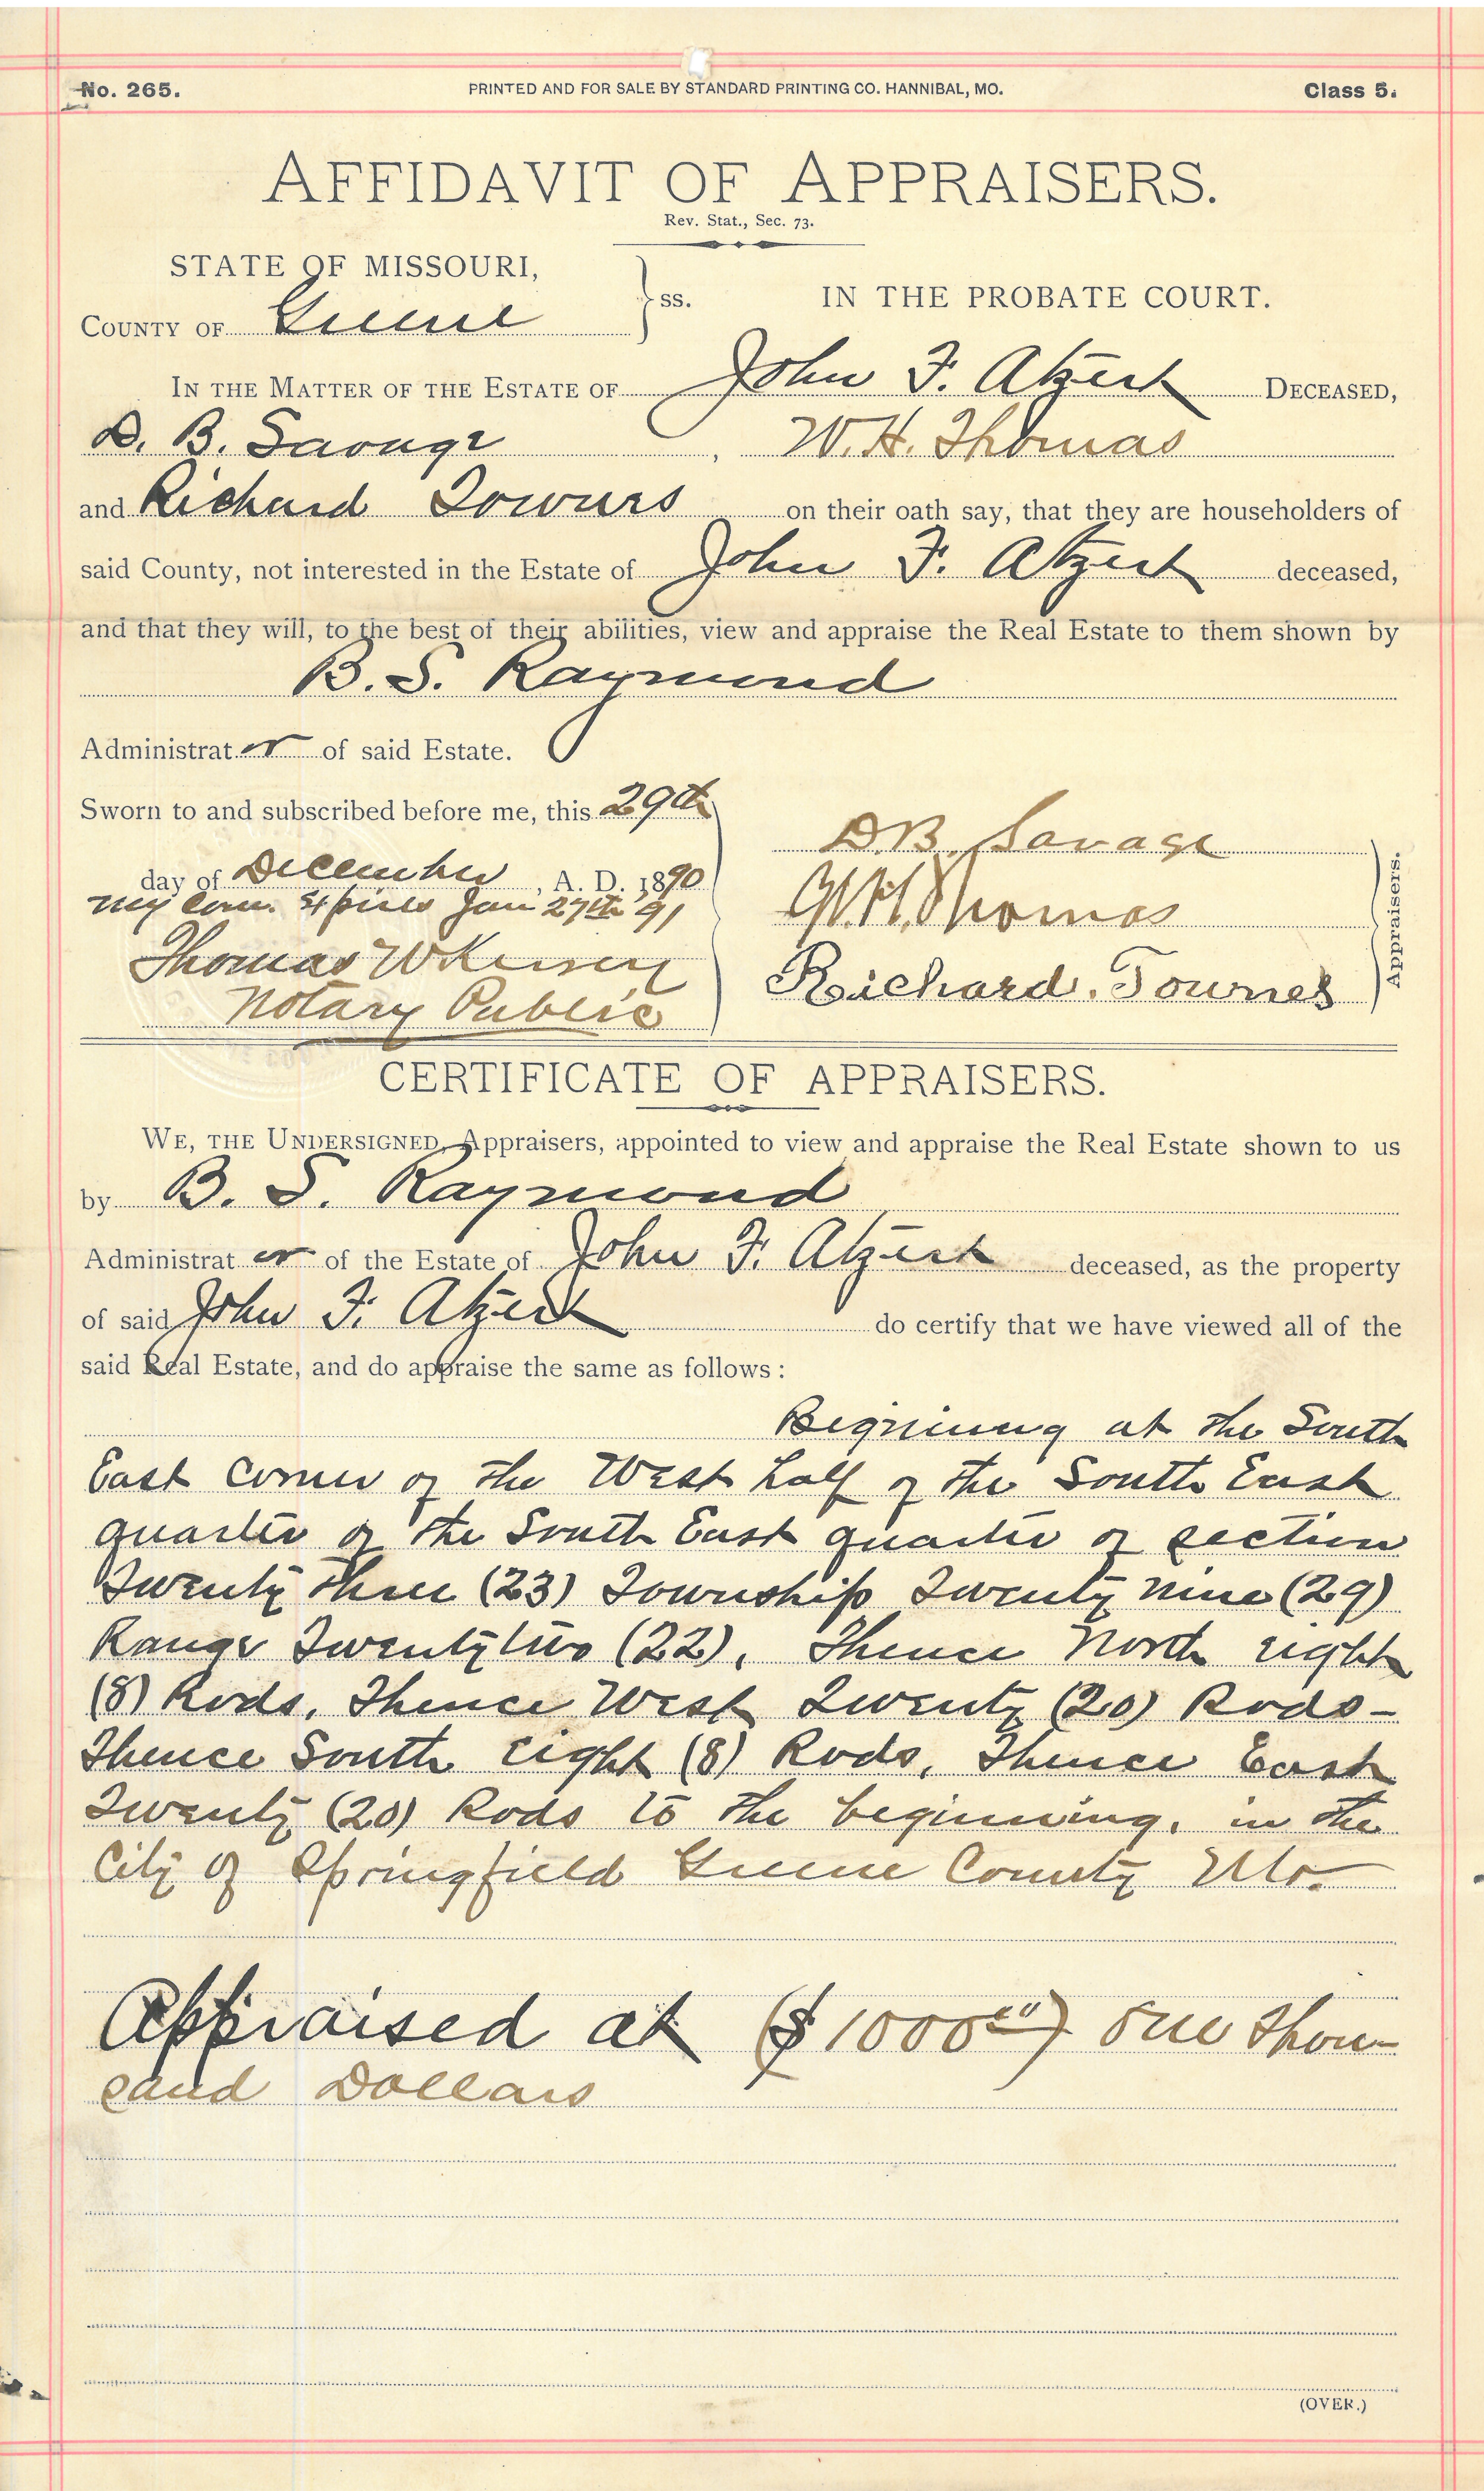 No. 265.
PRINTED AND FOR SALE BY STANDARD PRINTING CO. HANNIBAL, MO.
Class 5.
AFFIDAVIT OF APPRAISERS.
Rev. Stat., Sec. 73.
STATE OF MISSOURI,
COUNTY OF Greene
ss.
IN THE PROBATE COURT.
IN THE MATTER OF THE ESTATE OF John F. Atzert DECEASED,
D. B. Savage , W. H. Thomas
and Richard Townes on their oath say, that they are householders of
said County, not interested in the Estate of John F. Atzert deceased,
and that they will, to the best of their abilities, view and appraise the Real Estate to them shown by
B. S. Raymond
Administrator of said Estate.
Sworn to and subscribed before me, this 29th
day of December, A. D. 1890
My Com. Expires Jan 27th '91
Thomas W Kersey
Notary Public
D. B. Savage
W. H. Thomas
Richard. Townes
Appraisers.
CERTIFICATE OF APPRAISERS.
WE, THE UNDERSIGNED, Appraisers, appointed to view and appraise the Real Estate shown to us
by B. S. Raymond
Administrator of the Estate of John F. Atzert deceased, as the property
of said John F. Atzert do certify that we have viewed all of the
said Real Estate, and do appraise the same as follows :
Beginning at the South
East corner of the West half of the South East
quarter of the South East quarter of section
Twenty three (23) Township Twenty nine (29)
Range Twenty two (22), Thence North eight
(8) Rods, Thence West Twenty (20) Rods -
Thence South eight (8) Rods, Thence East
Twenty (20) Rods to the beginning, in the
City of Springfield Greene County Mo.
Appraised at ($1000 00) One Thou-
sand Dollars
(OVER.)